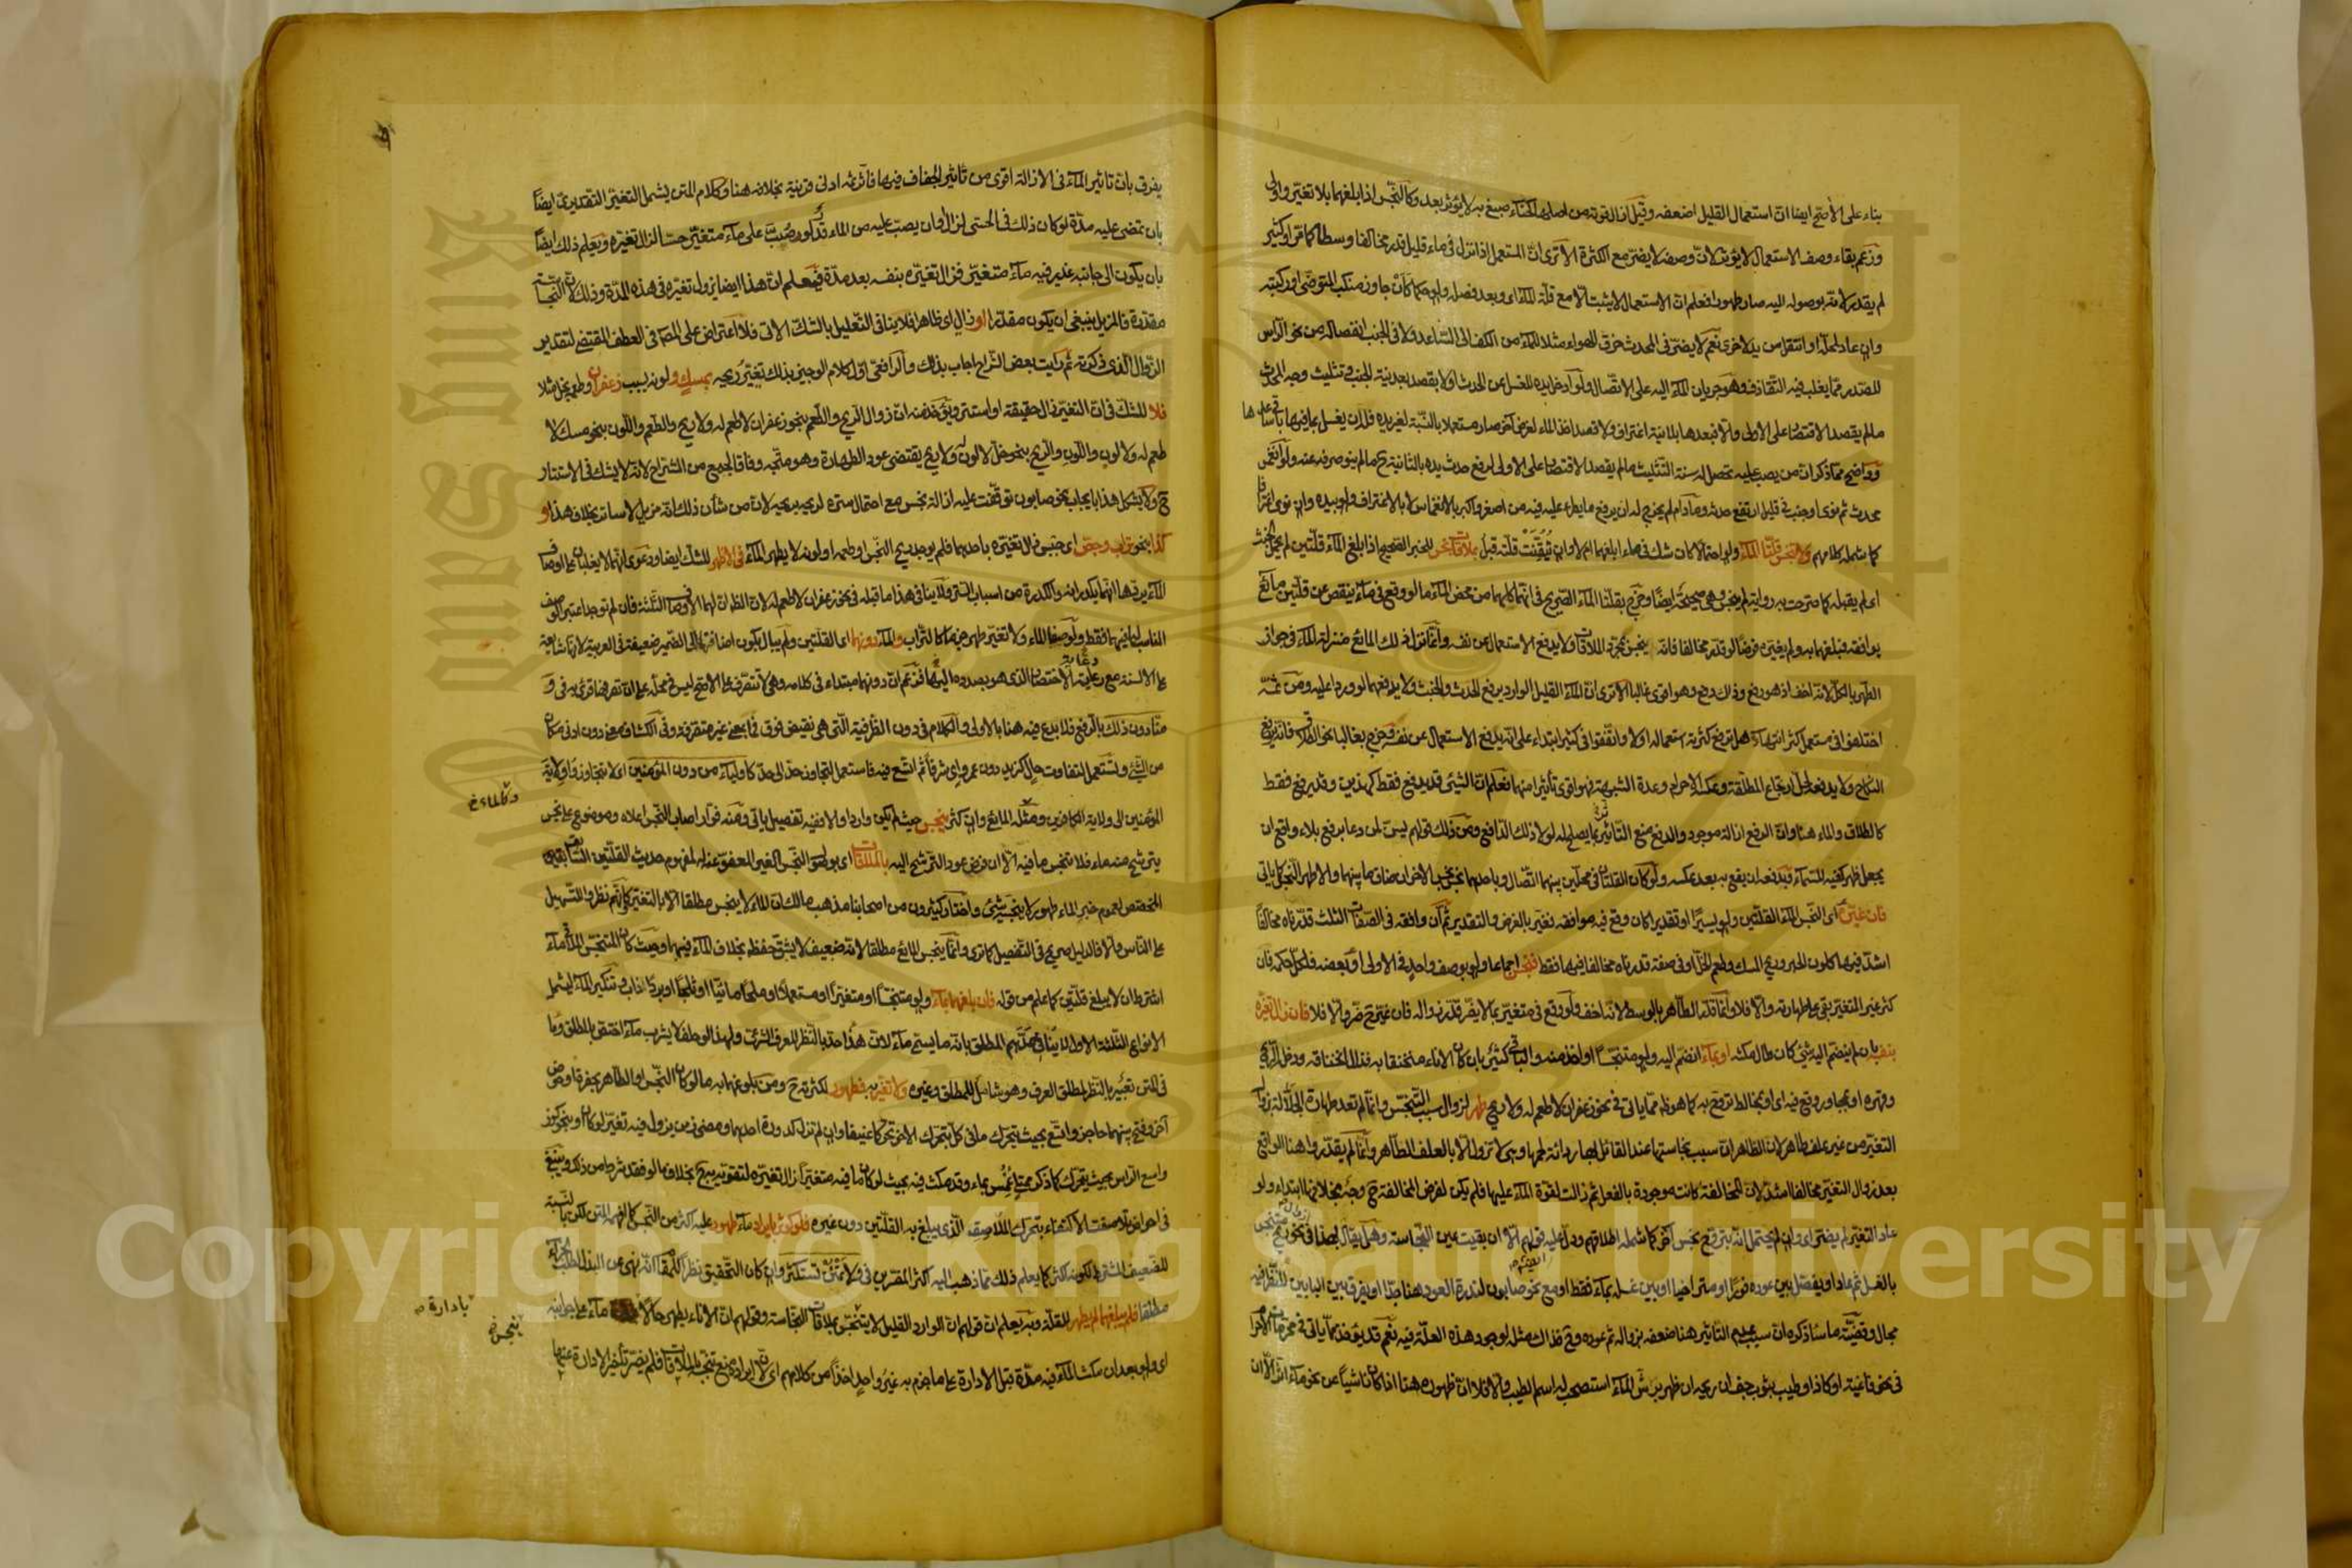 بناء على الأصح ايضا ان استعمال القليل اضعفه وقيل ان القوة من اصلها الحناء صبغ به لا يؤثر بعد وكالنجس اذا بلغهما بلا تغير واولى
وزعم بقاء وصف الاستعمال لا يؤثر لان وصفه لا يضر مع الكثرة الا ترى ان المستعمل اذا نزل في ماء قليل قدر مخالفا وسطا كما مر او كثير
لم يقدر لانه بوصوله اليه صار طهورا فعلم ان الاستعمال لا يثبت الا مع قلة الماء اى وبعد فصله ولو حكما كأن جاوز منكب المتوضئ او ركبته
وان عاد لمحله او انتقل من يد لاخرى نعم لا يضر في المحدث خرق للهواء مثلا للماء من الكف الى الساعد ولا في الجنب انفصاله من نحو الرأس
للصدر مما يغلب فيه التقاذف وهو جريان الماء اليه على الاتصال ولو ادخل يده للغسل عن الحدث اولا بقصد بعد نية الجنب وتثليث وجه المحدث
ما لم يقصد الاقتصار على الاولى والا فبعدها بلا نية اغتراف ولا قصد اخذ الماء لغرض آخر صار مستعملا بالنسبة لغير يده فله ان يغسل بما فيها باقي ساعدها
وواضح مما ذكر ان من يصب عليه تحصل له سنة التثليث ما لم يقصد الاقتصار على الاولى لرفع حدث يده بالثانية ح ما لم ينو صرفه عنه ولو انغمس
محدث ثم نوى او جنب في قليل ارتفع حدثه وما دام لم يخرج له ان يرفع ما يطرأ عليه فيه من اصغر واكبر بالانغماس لا بالاغتراف ولو بيده وان نوى اغترافا
كما شمله كلامهم ولا تنجس قلتا الماء ولو احتمالا كان شك في ماء ابلغهما ام لا وان تيقنت قلته قبل بملاقاة نجس للخبر الصحيح اذا بلغ الماء قلتين لم يحمل الخبث
اى لم يقبله كما صرحت به رواية لم ينجس وهى صحيحة ايضا وخرج بقلتا الماء الصريح في انهما كلهما من محض الماء ما لو وقع في ماء ينقص عن قلتين مائع
يوافقه فبلغهما به ولم يغيره فرضا لو قدر مخالفا فانه ينجس بمجرد الملاقاة ولا يدفع الاستعمال عن نفسه وانما نزل ذلك المائع منزلة الماء في جواز
الطهر بالكل لانه اخف اذ هو رفع وذاك دفع وهو اقوى غالبا الا ترى ان الماء القليل الوارد يرفع الحدث والخبث ولا يدفعهما لو وردا عليه ومن ثم
اختلفوا في مستعمل كثر انتهاء هل ترفع كثرته استعماله اولا واتفقوا في كثير ابتداء على انه يدفع الاستعمال عن نفسه فخرج بغالبا نحو الطلاق فانه يرفع
النكاح ولا يدفعه لحل ارتجاع المطلقة وعكسه الاحرام وعدة الشبهة فهو اقوى تأثيرا منهما فعلم ان الشئ قد يدفع فقط كهذين وقد يرفع فقط
كالطلاق والماء هنا وان الرفع ازالة موجود والدفع منع التأثير بما يصلح له لولا ذلك الدافع ومن ذلك قولهم يسن لمن دعا برفع بلاء واقع ان
يجعل ظهر كفيه للسماء وبدفعه ان يقع به بعد عكسه ولو كان القلتان في محلين بينهما اتصال وباحدهما نجس نجس الاخر ان ضاق ما بينهما والا طهر النجس كما يأتى
فان غيره اى النجس الماء القلتين ولو يسيرا او تقديرا كان وقع فيه موافقه تغير بالفرض والتقدير ثم ان وافقه في الصفات الثلث قدرناه مخالفا
اشد فيها كلون الحبر وريح المسك وطعم الخل او في صفة قدرناه مخالفا فيها فقط فنجس اجماعا ولو بوصف واحد في الاولى او بعضه فلكل حكمه فان
كثر غير المتغير بقى على طهارته والا فلا وانما قدر الطاهر بالوسط لانه اخف ولو وقع في متغير بما لا يضر قدر زواله فان غير ح ضر والا فلا فان زال تغيره
بنفسه بان لم ينضم اليه شئ كان طال مكثه او بماء انضم اليه ولو متنجسا او اخذ منه والباقى كثير بان كان الاناء منخنقا به فزال انخناقه ودخل الريح
وقهره او بمجاور وقع فيه اى او بمخالط تروح به كما هو ظ مما يأتى في نحو زعفران لا طعم له ولا ريح طهر لزوال سبب التنجس وانما لم تعد طهارة الجلالة بزوال
التغير من غير علف طاهر لان الظاهر ان سبب نجاستها عند القائل بها رداءة لحمها وهى لا تزول الا بالعلف للطاهر وانما لم يقدروا هنا الواقع
بعد زوال التغير مخالفا اشد لان المخالفة كانت موجودة بالفعل ثم زالت لقوة الماء عليها فلم يكن لفرض المخالفة ح وجه بخلافها ابتداء ولو
عاد التغير لم يضر اى وان لم يحتمل انه بتروح نجس آخر كما شمله اطلاقهم ودل عليه قولهم الا ان بقيت عين النجاسة وهل يقال بهذا في نحو ريح متنجس
بالغسل ثم عاد او يفصل بين عوده فورا او متراخيا او بين غسله بماء فقط او مع نحو صابون لندرة العود هنا جدا او يفرق بين البابين للنظر فيه
مجال وقضية ما سأذكره ان سبب عدم التأثير هنا ضعفه بزواله ثم عوده وح فذاك مثله لوجود هذه العلة فيه نعم قد يؤخذ مما يأتى في محرمات الاحرام
في نحو فاغية او كاذا وطيب بثوب جف ان ريحه ان ظهر برش الماء استصحب له اسم الطيب والا فلا ان ظهوره هنا اذا كان ناشيا عن نحو ماء اثر الا ان
يفرق بان تأثير الماء في الازالة اقوى من تأثير الجفاف فيها فاثر ثم ادنى قرينة بخلافه هنا وكلام المتن يشمل التغير التقديرى ايضا
بان تمضى عليه مدة لو كان ذلك في الحسى لزال او بان يصب عليه من الماء قدر لو صب على ماء متغير حسا لزال تغيره ويعلم ذلك ايضا
بان يكون الى جانبه غدير فيه ماء متغير فزال تغيره بنفسه بعد مدة فيعلم ان هذا ايضا يزول تغيره في هذه المدة وذلك لان النجاسة
مقدرة فالمزيل ينبغى ان يكون مقدرا او زال اى ظاهرا فلا ينافى التعليل بالشك الاتى فلا اعتراض على المص في العطف المقتضى لتقدير
الزوال الذى ذكرته ثم رأيت بعض الشراح اجاب بذلك والرافعى اول كلام الوجيز بذلك تغير ريحه بمسك ولونه بسبب زعفران وطعم بخل مثلا
فلا للشك في ان التغير زال حقيقة او استتر ويؤخذ منه ان زوال الريح والطعم بنحو زعفران لا طعم له ولا ريح والطعم واللون بنحو مسك لا
طعم له ولا لون واللون والريح بنحو خل لا لون له ولا ريح يقتضى عود الطهارة وهو متجه وفاقا لجمع من الشراح لانه لا يشك في الاستتار
ح ولا يشكل هذا بايجاب نحو صابون توقفت عليه ازالة نجس مع احتمال ستره لريحه بريحه لان من شأن ذلك انه مزيل لا ساتر بخلاف هذا و
كذا بنحو تراب وجص اى جبس فلا تغيره باحدهما فلم يوجد ريح النجس او طعمه او لونه لا يطهر الماء في الاظهر للشك ايضا ودعوى انهما لا يغلبان على اوصاف
الماء يردها انهما يكدرانه والكدرة من اسباب الستر ولا ينافى هذا ما قبله في نحو زعفران لا طعم له لان الظ ان لهما الاوصاف الثلثة فان لم توجد اعتبر الوصف
المناسب لما فيهما فقط ولو صفا الماء ولا تغير طهر جزما كالتراب والماء دونهما اى القلتين ولم يبال بكون اضافتها الى الضمير ضعيفة في العربية لانها شايعة
على الالسنة مع رعاية الاختصار الذى هو بصدده اليها فزعم ان دونهما مبتداء في كلامه وهى لا تتصرف على الاصح ليس في محله على ان تصرفها قرئ به في و
منا دون ذلك بالرفع فلا بدع فيه هنا بالاولى والكلام في دون الظرفية التى هى نقيض فوق فما بمعنى غير متصرفة وفي الكشاف معنى دون ادنى مكان
من الشئ وتستعمل للتفاوت حال كزيد دون عمرو اى شرفا ثم اتسع فيه فاستعمل لتجاوز حد الى حد كاولياء من دون المؤمنين اى لا يتجاوزوا ولاية
المؤمنين الى ولاية الكافرين ومثله المائع وان كثر ينجس حيث لم يكن واردا والا ففيه تفصيل يأتى ومنه فوار اصاب النجس اعلاه وموضوع على نجس
يترشح منه ماء فلا ينجس ما فيه الا ان فرض عود الترشح اليه بالملاقاة اى بوصول النجس الغير المعفو عنه له لمفهوم حديث القلتين السابق
المخصص لعموم خبر الماء طهور لا ينجسه شئ واختار كثيرون من اصحابنا مذهب مالك ان الماء لا ينجس مطلقا الا بالتغير وكأنهم نظروا للتسهيل
على الناس والا فالدليل صريح في التفصيل كما ترى وانما ينجس المائع مطلقا لانه ضعيف لا يشق حفظه بخلاف الماء فيهما وحيث كان المتنجس الملاقى ماء
اشترط ان لا يبلغ قلتين كما علم من قوله فان بلغهما بماء ولو متنجسا او متغيرا او مستعملا او ملحا مائيا او ثلجا او بردا ذاب وتنكير الماء ليشمل
الانواع الثلثة الاول لا ينافى حدهم المطلق بانه ما يسمى ماء لان هذا حد بالنظر للعرف الشرعى ولهذا لو حلف لا يشرب ماء اختص بالمطلق وما
في المتن تعبير بالنظر لمطلق العرف وهو شامل للمطلق وغيره ولا تغير به فطهور لكثرته ح ومن بلوغهما به ما لو كان النجس او الطاهر بحفرة او حوض
آخر وفتح بينهما حاجز واتسع بحيث يتحرك ما في كل بتحرك الاخر تحركا عنيفا وان لم تزل كدورة احدهما ومضى زمن يزول فيه تغير لو كان او بنحو كوز
واسع الرأس بحيث يتحرك كما ذكر ممتلئ غمس بماء وقد مكث فيه بحيث لو كان ما فيه متغيرا زال تغيره لتقويه به ح بخلاف ما لو فقد شرط من ذلك وينبغى
في احواض تلاصقت الاكتفاء بتحرك الملاصق الذى يبلغ به القلتين دون غيره فلو كوثر بايراد ماء طهور عليه اكثر من النجس كما افهمه المتن لكن بالنسبة
للضعيف المشترط لكونه اكثر كما يعلم ذلك مما ذهب اليه اكثر المفسرين في ولا تمنن تستكثر وان كان التحقيق نظرا لكلمة ان النهى عن البذل لطلب الجزاء
مطلقا فلم يبلغهما لم يطهر للقلة وبه يعلم ان قولهم ان الوارد القليل لا يتنجس بملاقاة النجاسة وقولهم ان الاناء يطهر حالا ماء على جوانبه
اى ولو بعد ان مكث الماء فيه مدة قبل الادارة على ما جزم به غير واحد اخذا من كلامهم اى لان ايراده منع تنجسه بالملاقاة فلم يضر تأخير الادارة عنها
وكالماء خ
بادارة